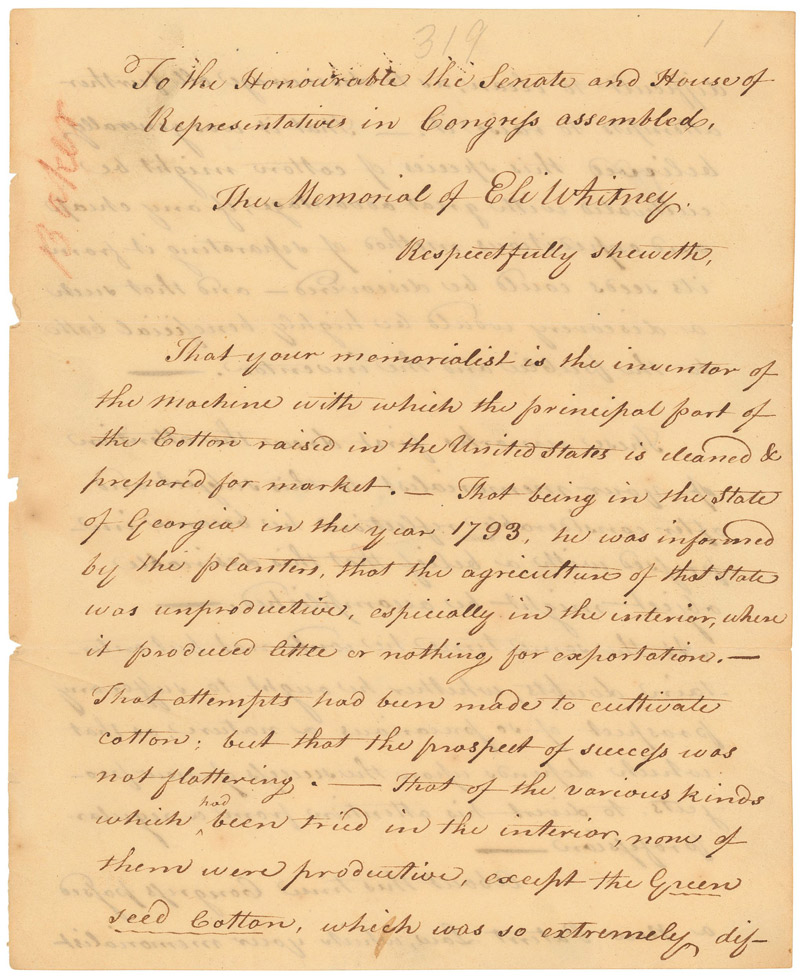 319
1
To the Honourable the Senate and House of
Representatives in Congress assembled,
The Memorial of Eli Whitney.
Respectfully sheweth,
That your memorialist is the inventor of
the machine with which the principal part of
the Cotton raised in the United States is cleaned &
prepared for market. — That being in the State
of Georgia in the year 1793, he was informed
by the planters, that the agriculture of that State
was unproductive, especially in the interior, where
it produced little or nothing for exportation. —
That attempts had been made to cultivate
cotton; but that the prospect of success was
not flattering. — That of the various kinds
which had been tried in the interior, none of
them were productive, except the Green
seed Cotton, which was so extremely dif-